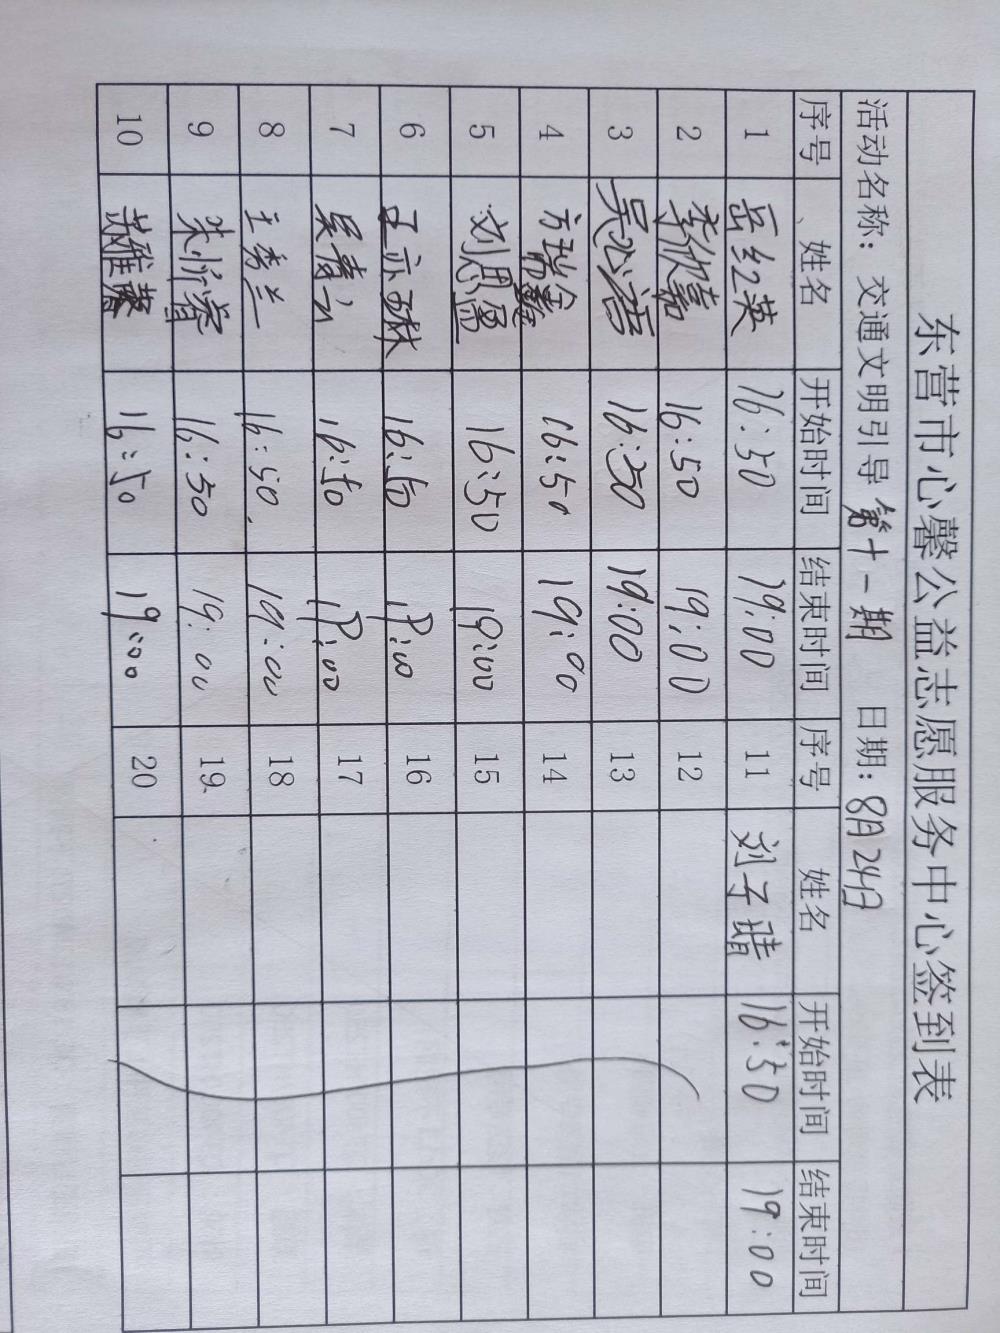 东营市心馨公益志愿服务中心签到表
活动名称：交通文明引导 第十一期 日期：8月24日
序号 姓名 开始时间 结束时间 序号 姓名 开始时间 结束时间
1 岳红英 16:50 19:00 11 刘子晴 16:50 19:00
2 李欣嘉 16:50 19:00 12
3 吴心语 16:50 19:00 13
4 方瑞鑫 16:50 19:00 14
5 刘恩彤 16:50 19:00 15
6 王亦琳 16:50 19:00 16
7 16:50 19:00 17
8 王秀兰 16:50. 19:00 18
9 16:50 19:00 19
10 16:50 19:00 20